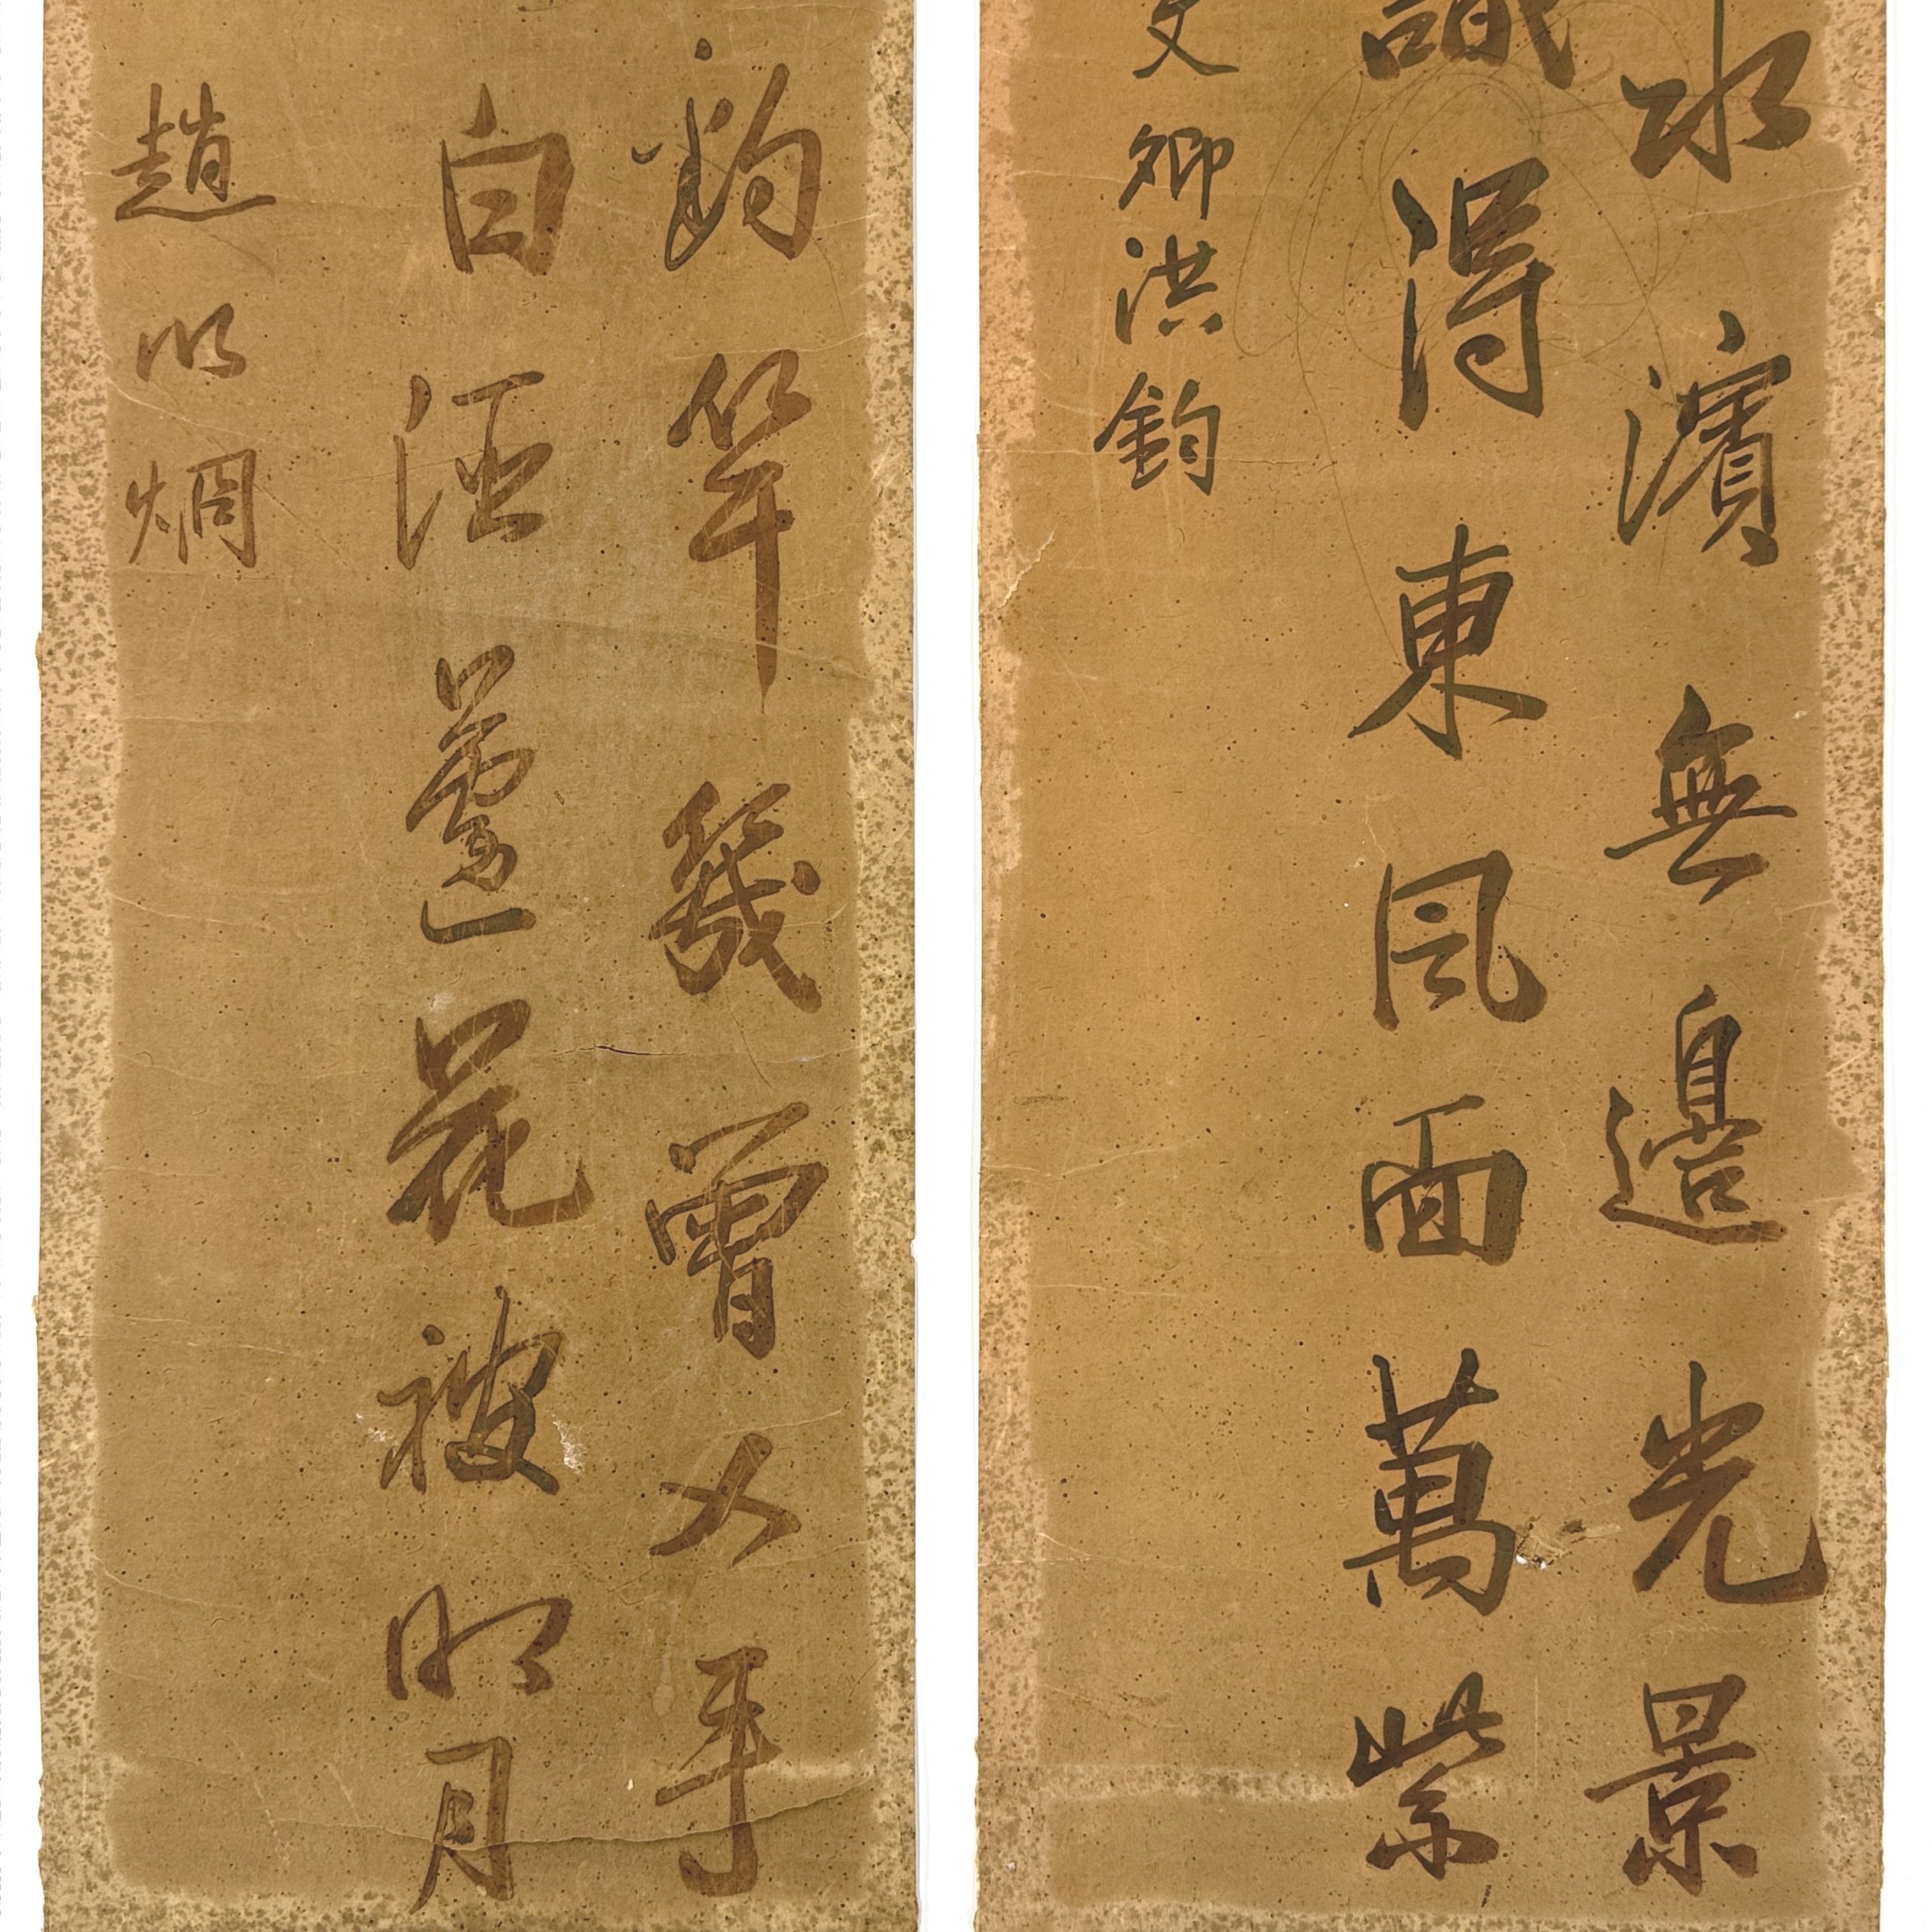 水濱無邊光景
識得東風面萬紫
文卿洪鈞
釣竿幾曾入手
白酒蘆花被明月
趙以炯